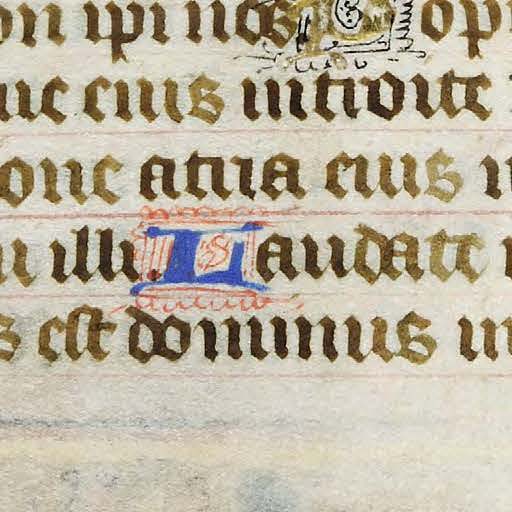 on ipi nos Pop
ue eius introite
one atria eius
illi. Laudate
s est dominus in